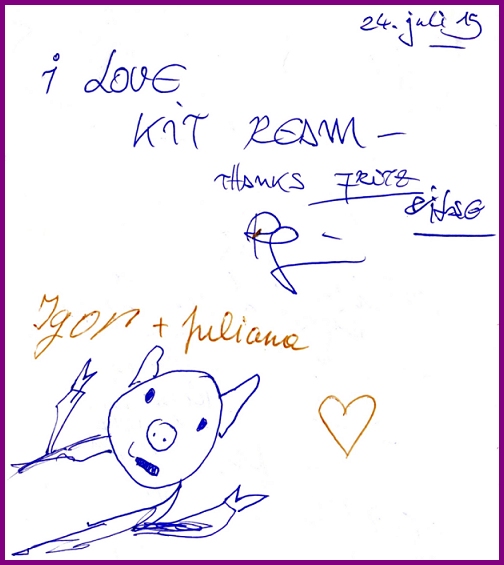 24. juli 15
i LOVE
KIT REAM –
THANKS FRITZ
Igor + juliana